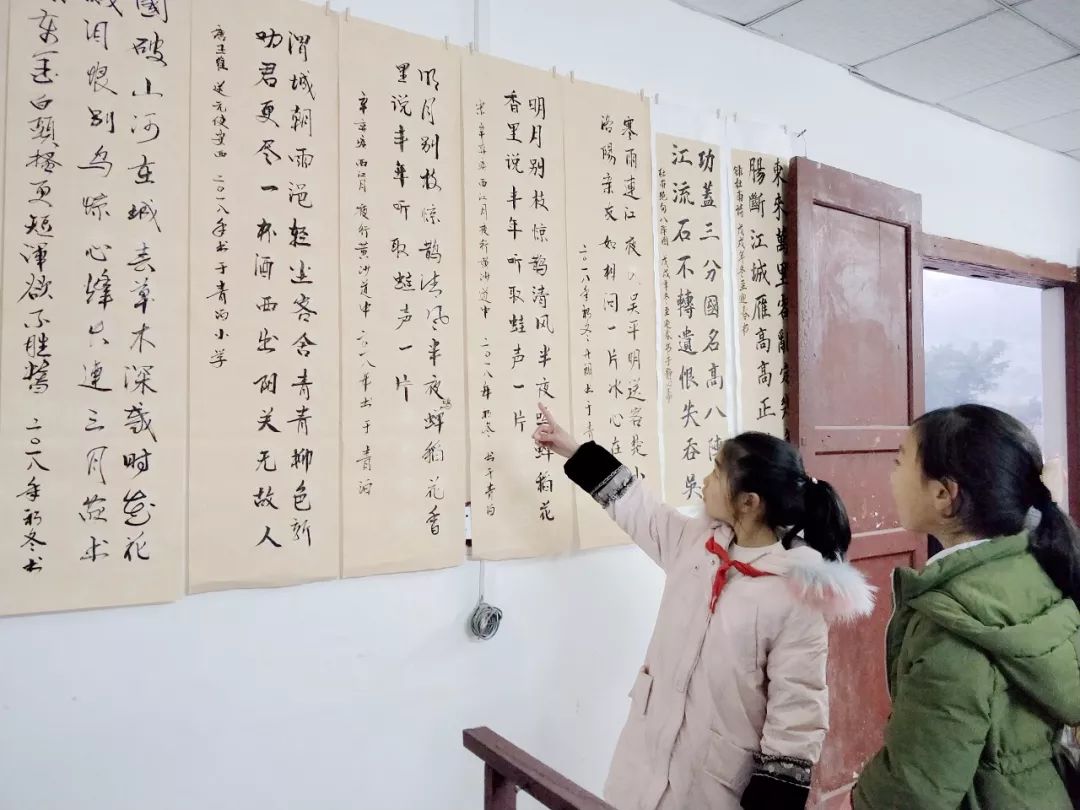 東来萬里客亂定
腸斷江城雁高高正
功蓋三分國名高八陣
江流石不轉遺恨失吞吳
杜甫绝句八阵图
寒雨連江夜入吴平明送客楚山
洛陽亲友如相问一片冰心在
二〇一八年初冬
明月别枝惊鹊清风半夜鸣蝉稻花
香里说丰年听取蛙声一片
宋辛弃疾西江月夜行黄沙道中 二〇一八年初冬 书于青泊
明月别枝惊鹊清风半夜鸣蝉稻花香
里说丰年听取蛙声一片
辛弃疾西江月夜行黄沙道中 二〇一八年书于青泊
渭城朝雨浥轻尘客舍青青柳色新
劝君更尽一杯酒西出阴关无故人
唐王维送元使安西 二〇一八年书于青泊小学
國破山河在城春草木深感时花
溅泪恨别鸟惊心烽火連三月家书
万金白頭搔更短渾欲不胜簪 二〇一八年初冬书